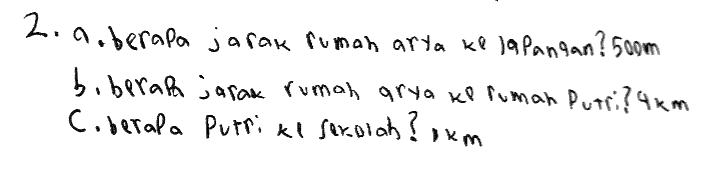 2. a. berapa jarak rumah arya ke lapangan? 500m
b. berapa jarak rumah arya ke rumah Putri? 4km
C. berapa Putri ke sekolah? km